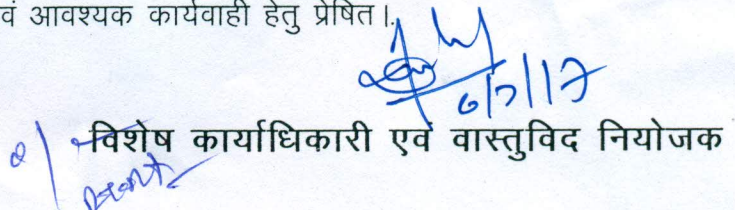 वं आवश्यक कार्यवाही हेतु प्रेषित।
6/7/17
विशेष कार्याधिकारी एवं वास्तुविद नियोजक